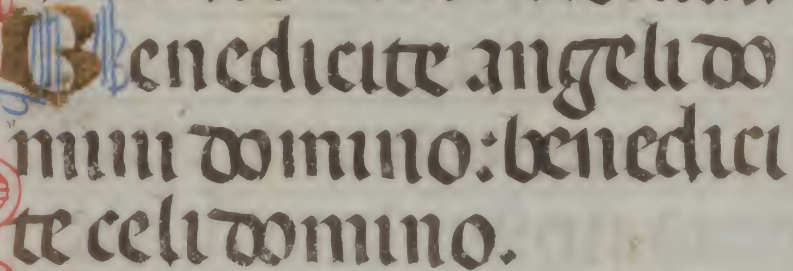 Benedicite angeli do
mini domino: benedici
te celi domino.